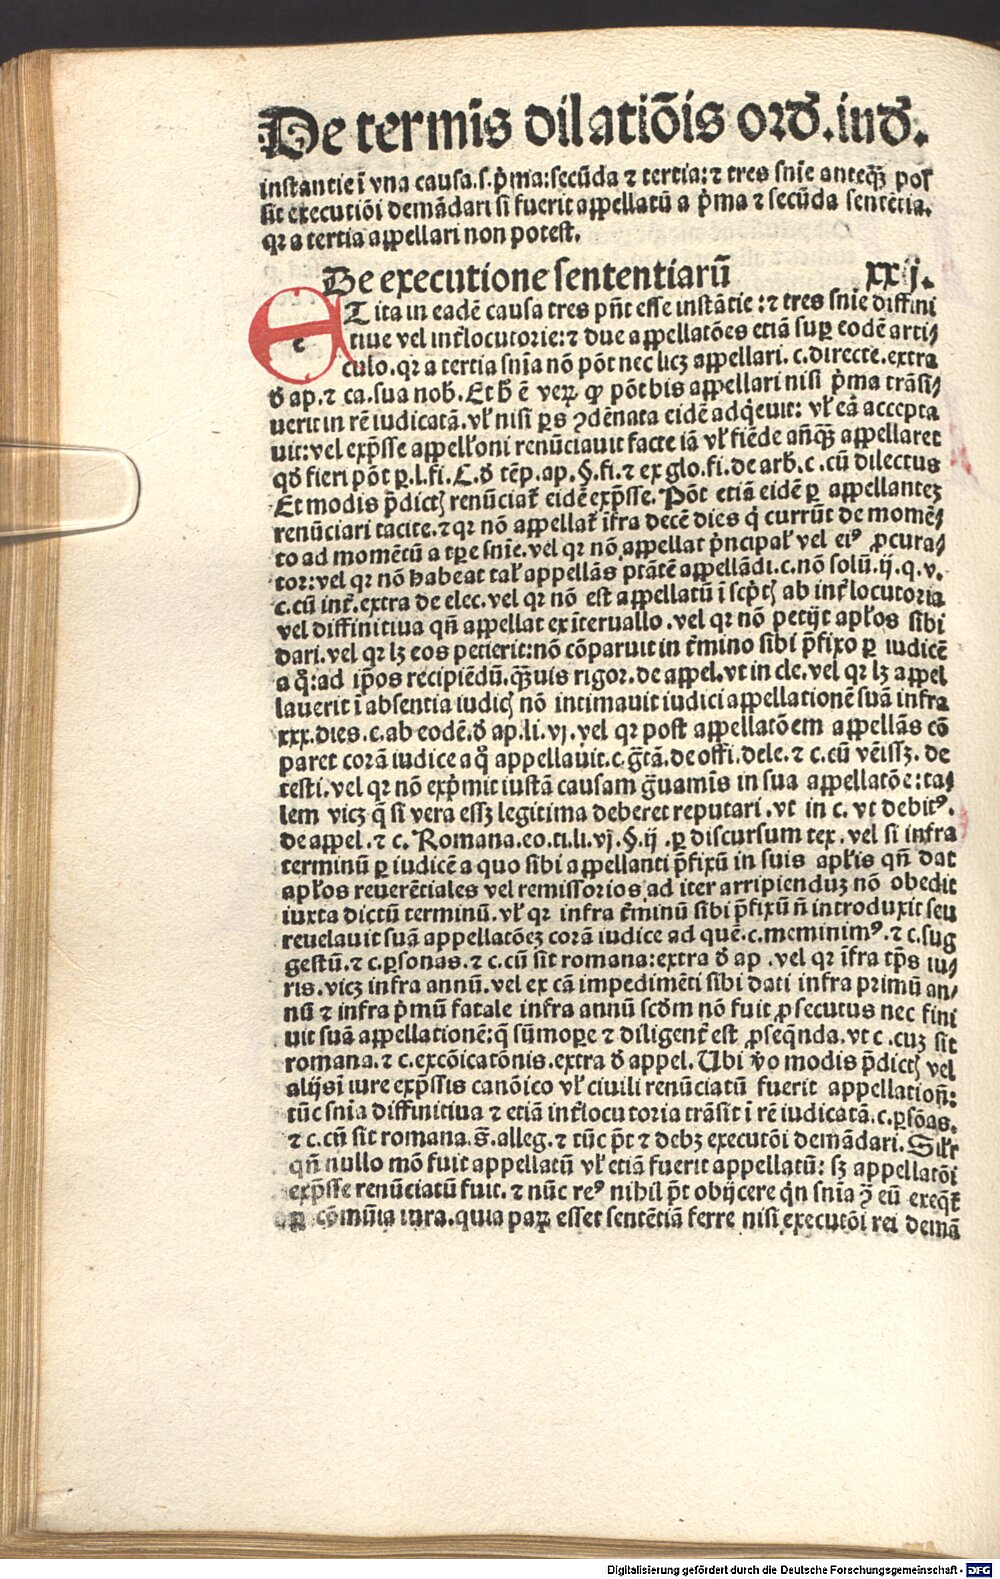 De termīs dilatiōis orď.iuď.
instantie ī vna causa.s.p̍ma:secūda ⁊ tertia:⁊ tres snīe anteqȝ̄ pos
sit executiōi demādari si fuerit appellatū a p̍ma ⁊ secūda sentētia.
qꝛ a tertia appellari non potest.
De executione sententiarū xxij.
ETita in eadē causa tres pn̄t esse instātie:⁊ tres snīe diffini
tiue vel int̄locutorie:⁊ due appellatōes etiā suꝑ eodē arti/
culo.qꝛ a tertia snīa nō pōt nec licȝ appellari.c.directe.extra
ď ap.⁊ ca.sua nob̄.Et h̄ ē veꝝ ꝙ pōt bis appellari nisi p̍ma trāsi/
uerit in rē iudicatā.vl̄ nisi ꝑs ↄdēnata eidē adq̍euit:vl̄ eā accepta
uit:vel exp̄sse appell̄oni renūciauit facte iā vl̄ fiēde añqȝ̄ appellaret
qď fieri pōt ꝑ.l.fi.C.ď tēp.ap.§.fi.⁊ ex glo.fi.de arb̄.c.cū dilectus
Et modis p̄dictꝭ renūciat̄ eidē exp̄sse.Pōt etiā eidē ꝑ appellanteȝ
renūciari tacite.⁊ qꝛ nō appellat̄ īfra decē dies q̍ currūt de momē/
to ad momētū a tꝑe snīe.vel qꝛ nō appellat p̍ncipal̄ vel eiꝰ ꝓcura/
tor:vel qꝛ nō habeat tal̄ appellās ptātē appellādi.c.nō solū.ij.q.v.
c.cū int̄.extra de elec.vel qꝛ nō est appellatū ī scp̍tꝭ ab int̄locutoria
vel diffinitiua qn̄ appellat ex īteruallo.vel qꝛ nō petijt apl̄os sibi
dari.vel qꝛ lȝ eos petierit:nō cōparuit in t̄mino sibi p̄fixo ꝑ iudicē
a q̊:ad ip̄os recipiēdū.qȝ̄uis rigor.de appel.vt in cle.vel qꝛ lȝ appel
lauerit ī absentia iudicꝭ nō intimauit iudici appellationē suā infra
xxx.dies.c.ab eodē.ď ap.li.vj.vel qꝛ post appellatōem appellās cō
paret corā iudice a q̊ appellauit.c.gr̄tā.de offi.dele.⁊ c.cū vēissȝ.de
testi.vel qꝛ nō exp̍mit iustā causam gr̄uamīs in sua appellatōe:ta/
lem vicȝ q̄ si vera essȝ legitima deberet reputari.vt in c.vt debitꝰ.
de appel.⁊ c.Romana.eo.ti.li.vj.§.ij.ꝑ discursum tex.vel si infra
terminū ꝑ iudicē a quo sibi appellanti p̄fixū in suis apl̄is qn̄ dat
apl̄os reuerētiales vel remissorios ad iter arripienduȝ nō obedit
iuxta dictū terminū.vl̄ qꝛ infra t̄minū sibi p̄fixū n̄ introduxit seu
reuelauit suā appellatōeȝ corā iudice ad quē.c.meminimꝰ.⁊ c.sug
gestū.⁊ c.ꝑsonas.⁊ c.cū sit romana:extra ď ap.vel qꝛ īfra tp̄s iu/
ris.vicȝ infra annū.vel ex cā impedimēti sibi dati infra primū an/
nū ⁊ infra p̍mū fatale infra annū scďm nō fuit ꝓsecutus nec fini
uit suā appellationē:q̄ sūmoꝑe ⁊ diligent̄ est ꝓseq̄nda.vt c.cuȝ sit
romana.⁊ c.excōicatōnis.extra ď appel.Ubi v̊o modis p̄dictꝭ vel
alijs ī iure exp̄ssis canōico vl̄ ciuili renūciatū fuerit appellationī:
tūc snīa diffinitiua ⁊ etiā int̄locutoria trāsit ī rē iudicatā.c.ꝑsōas.
⁊ c.cū sit romana.s̄.alleg.⁊ tūc pōt ⁊ debȝ executōi demādari.Sil̄r
qn̄ nullo mō fuit appellatū vl̄ etiā fuerit appellatū:sȝ appellatōi
exp̄sse renūciatū fuit.⁊ nūc reꝰ nihil pōt obijcere q̍n snīa ↄ̄ eū exeq̄t̄
ꝑ cōmūia iura.quia paꝝ esset sentētiā ferre nisi executōi rei demā